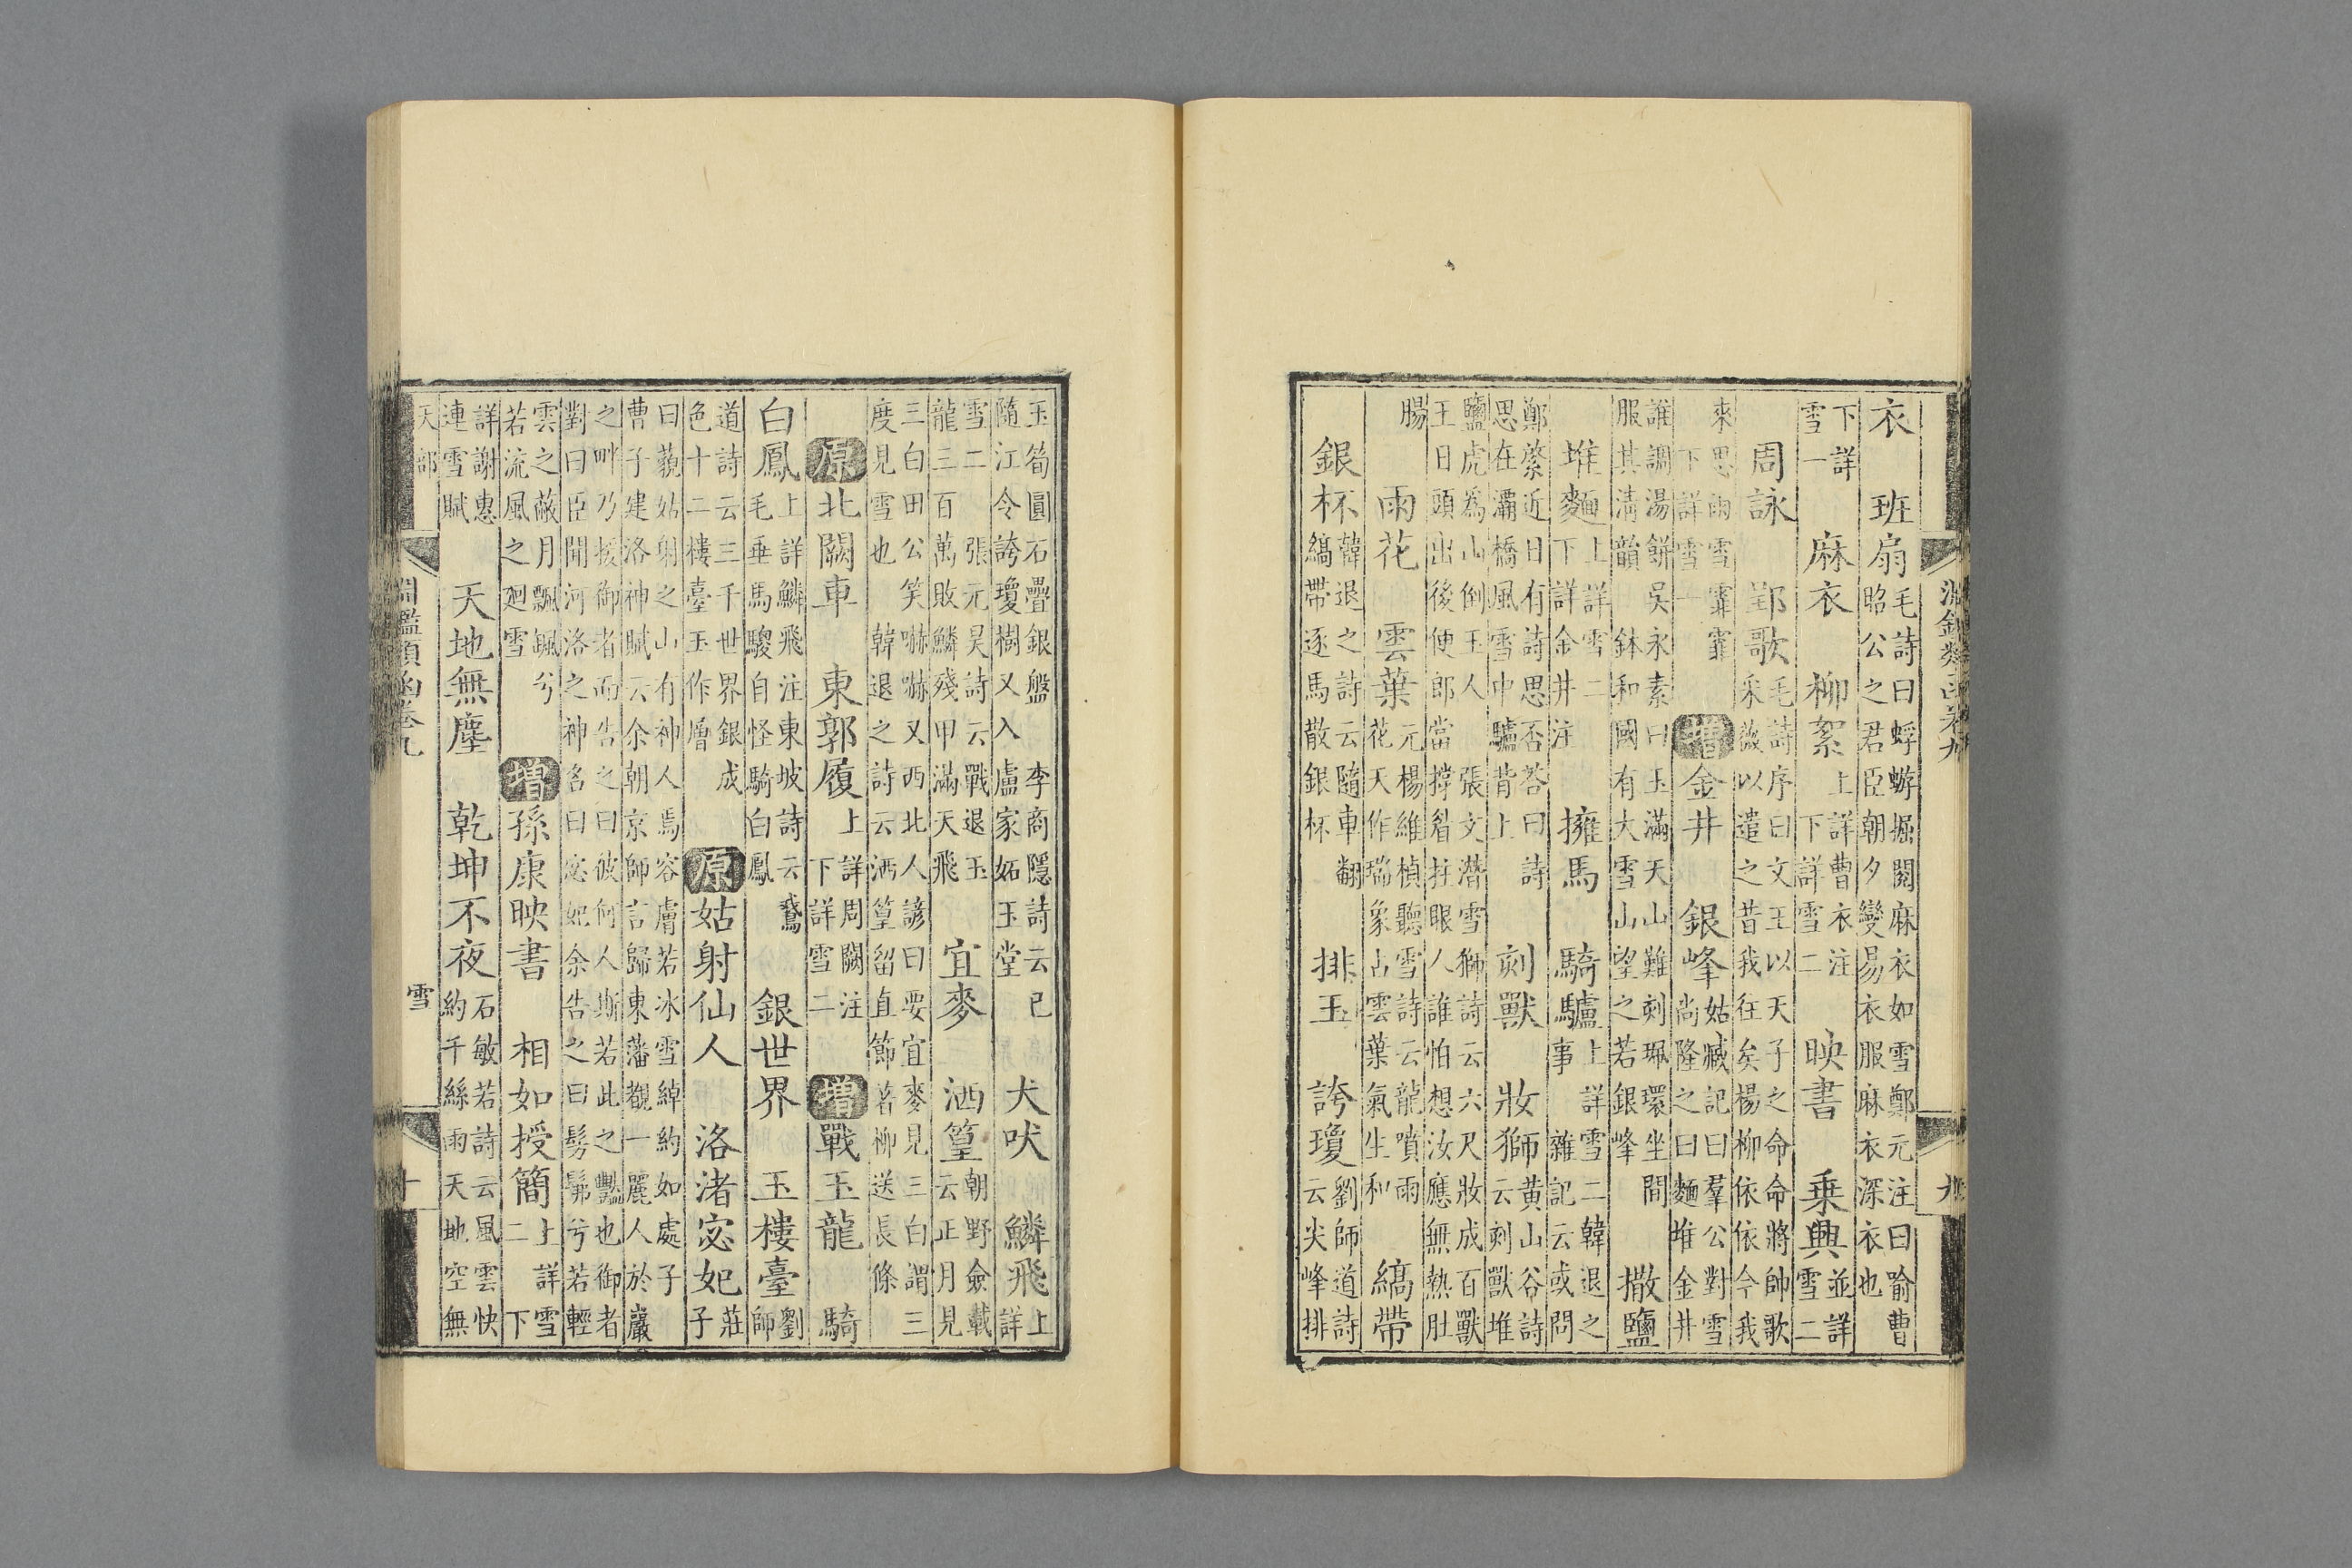 淵鑑類函卷九 九
衣 班扇 毛詩曰蜉蝣掘閱麻衣如雪鄭元注曰喻曹昭公之君臣朝夕變易衣服麻衣深衣也
下詳雪一 麻衣 柳絮 上詳曹衣注下詳雪二 映書 乗興 並詳雪二
周詠 郢歌 毛詩序曰文王以天子之命命將帥歌采薇以遣之昔我往矣楊柳依依今我
來思雨雪霏霏下詳雪一 增 金井 銀峰 姑臧記曰羣公對雪尚隆之曰麵堆金井
誰調湯餅吳永素曰玉滿天山難刻珮環坐間服其淸韻 鉢和國有大雪山望之若銀峰 撒鹽
堆麵 上詳雪二下詳金井注 擁馬 騎驢 上詳雪二韓退之事 雜記云或問
鄭綮近日有詩思否荅曰詩思在灞橋風雪中驢背上 刻獸 妝獅 黄山谷詩云刻獸堆
鹽虎為山倒玉人 張文潛雪獅詩云六尺妝成百獸王日頭出後便郎當撐眉拄眼人誰怕想汝應無熱肚
腸 雨花 雲葉 元楊維楨聽雪詩云龍噴雨花天作瑞象占雲葉氣生和 縞帶
銀杯 韓退之詩云隨車翻縞帶逐馬散銀杯 排玉 誇瓊 劉師道詩云尖峰排
玉筍圓石疊銀盤 李商隱詩云已隨江令誇瓊樹又入盧家妬玉堂 犬吠 鱗飛 上詳
雪二 張元昊詩云戰退玉龍三百萬敗鱗殘甲滿天飛 宜麥 洒篁 朝野僉載云正月見
三白田公笑嚇嚇又西北人諺曰要宜麥見三白謂三度見雪也 韓退之詩云洒篁留直節着柳送長條
原 北闕車 東郭履 上詳周闕注下詳雪二 增 戰玉龍 騎
白鳳 上詳鱗飛注東坡詩云鵞毛垂馬騣自怪騎白鳳 銀世界 玉樓臺 劉師
道詩云三千世界銀成色十二樓臺玉作層 原 姑射仙人 洛渚宓妃 莊子
曰藐姑射之山有神人焉容膚若冰雪綽約如處子曹子建洛神賦云余朝京師言歸東藩覩一麗人於巖
之畔乃援御者而告之曰彼何人斯若此之豔也御者對曰臣聞河洛之神名曰宓妃余告之曰髣髴兮若輕
雲之蔽月飄颻兮若流風之廻雪 增 孫康映書 相如授簡 上詳雪二下
詳謝惠連雪賦 天地無塵 乾坤不夜 石敏若詩云風雲快約千絲雨天地空無
天部 淵鑑類函卷九 雪 十